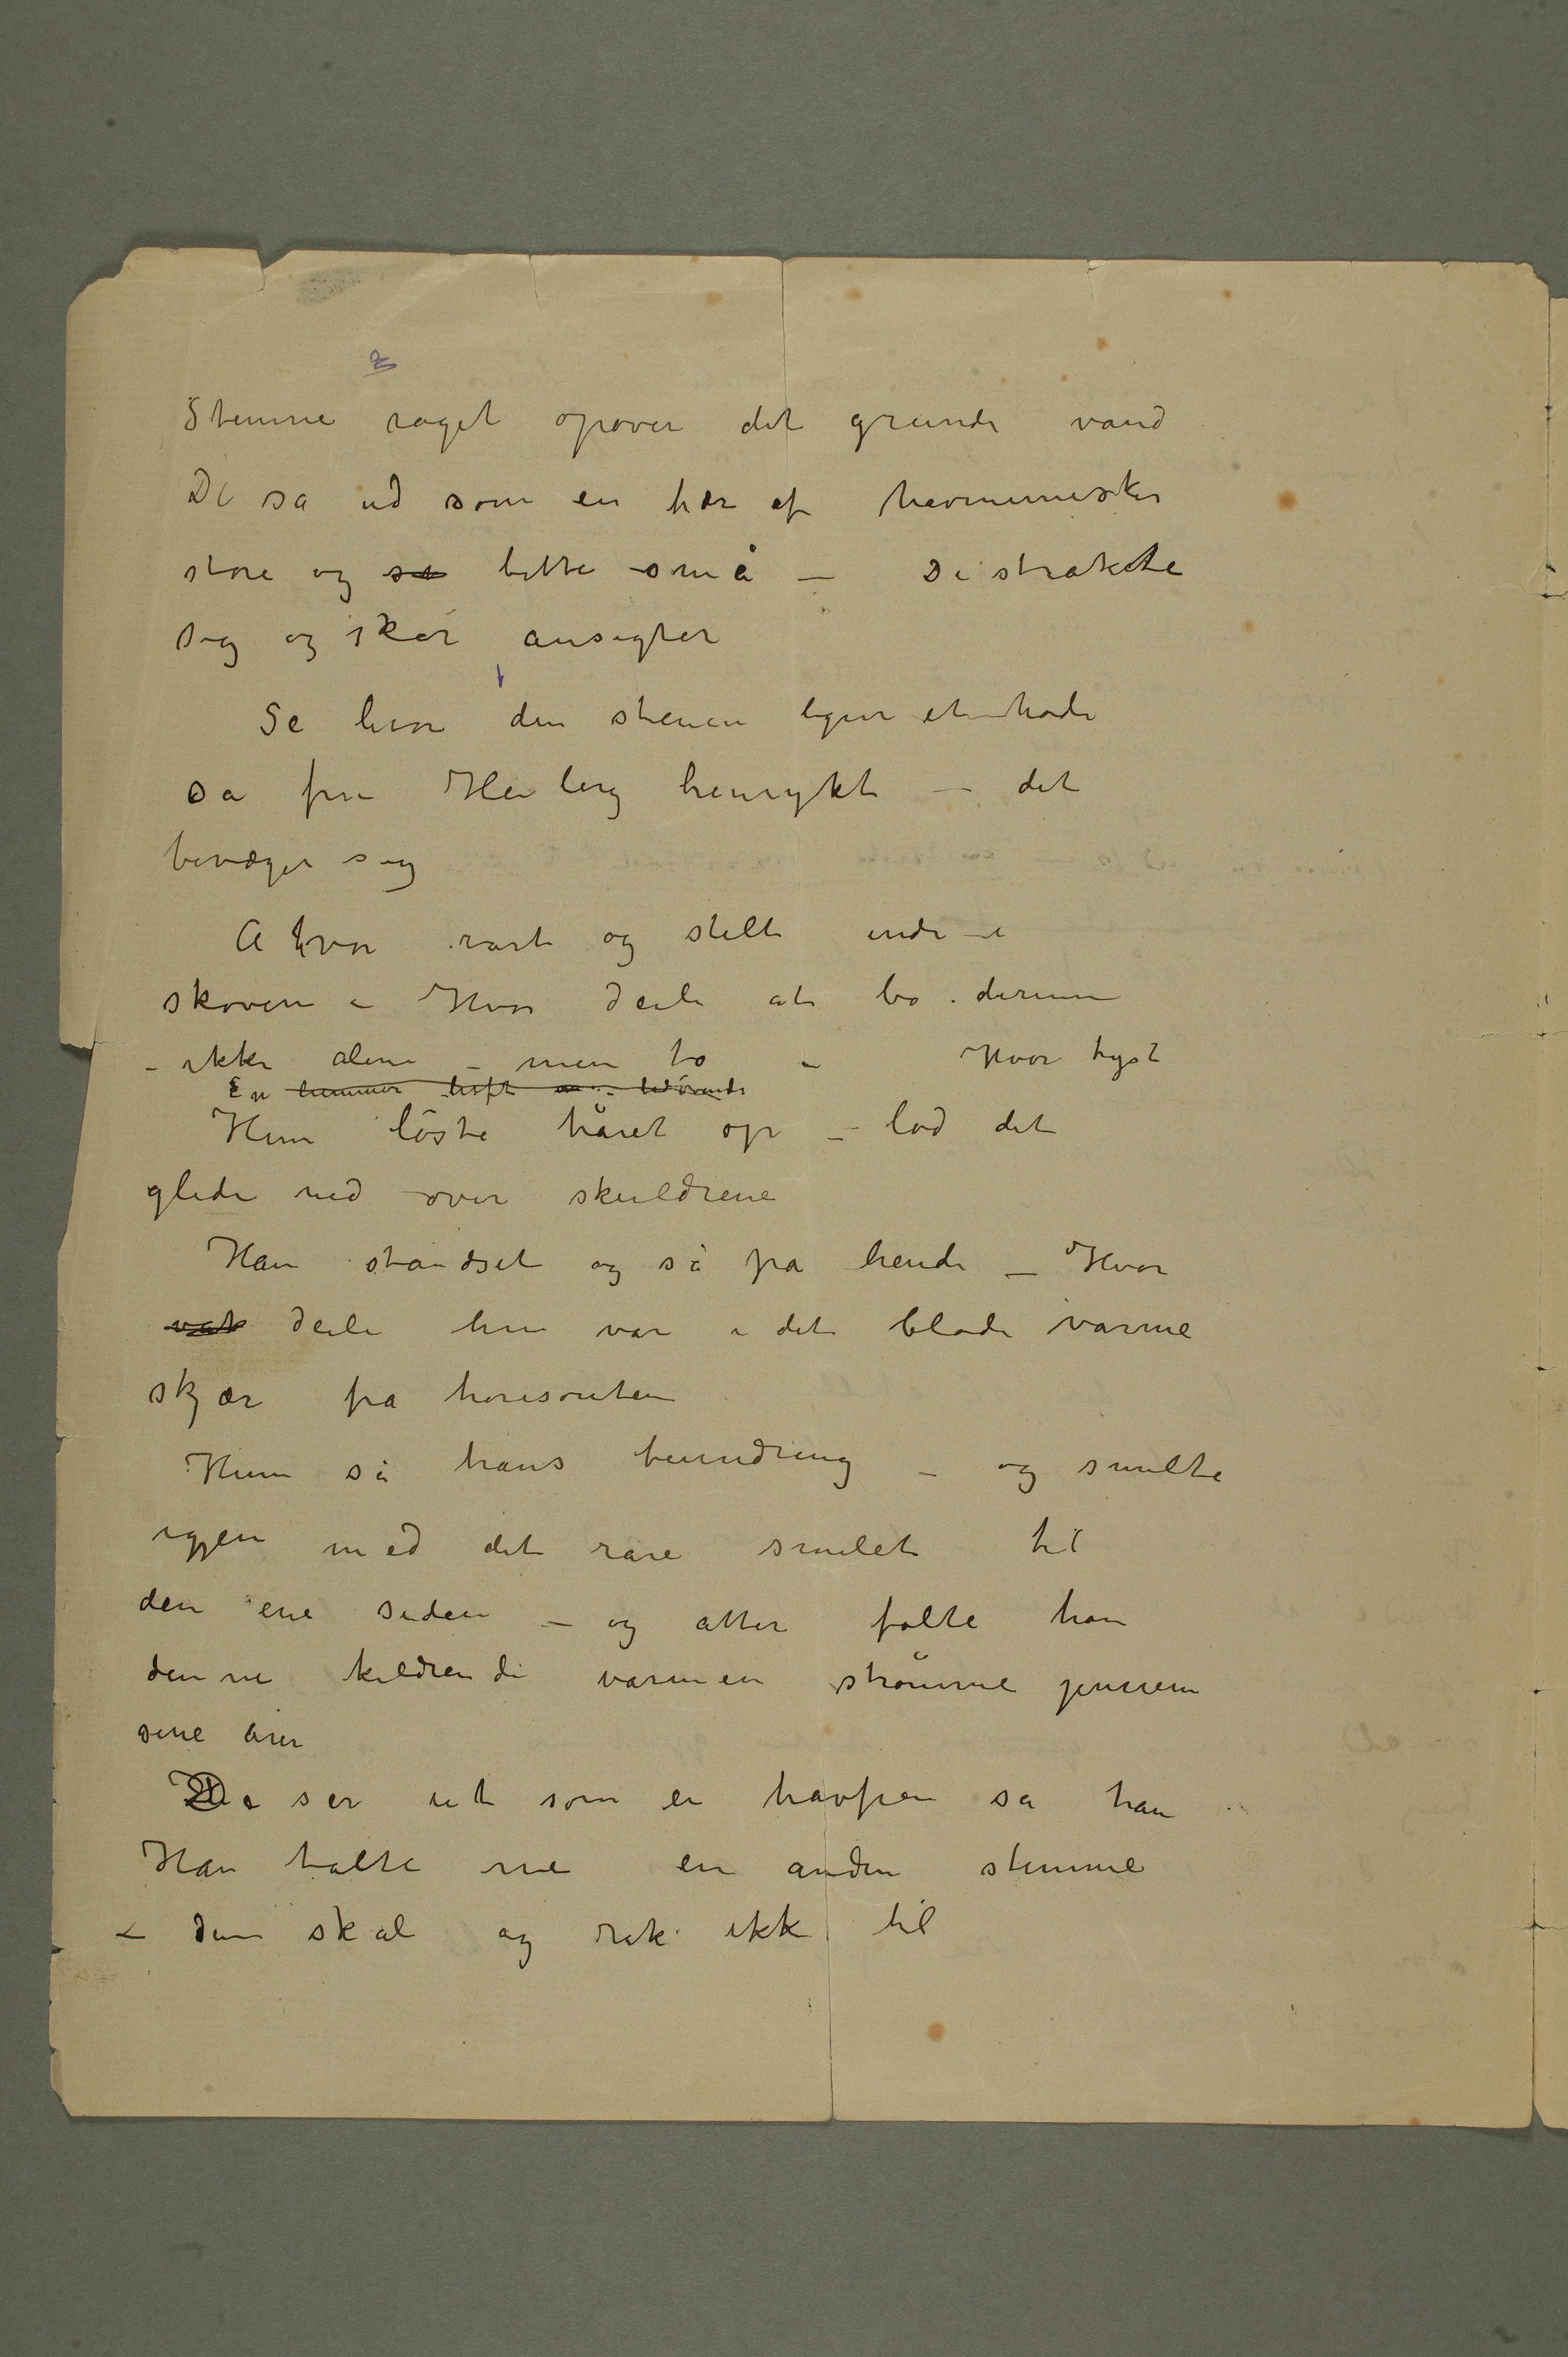 2
Stenene raget opover det grunde vand
De så ud som en hær af havmennesker
store og så bitte små – De strakte
sig og skar ansigter
Se hvor den stenen ligner et hode
sa fru Heiberg henrykt – det
bevæger sig
A hvor rart og stille inde i
skoven – Hvor deili at bo derinne
– ikke alene – men to – Hvor tyst
En luft
Hun løste håret op – lod det
glide ned over skuldrene
Han standset og så på hende – Hvor
var deili hun var i det bløde varme
skjær fra horisonten
Hun så hans beundring – og smilte
igjen med det rare smilet til
den ene siden – og atter følte han
denne kildrende varmen strømme jennem
sine årer
De ser ut som en havfrue sa han
Han talte me en anden stemme
– den skal og rak ikke til